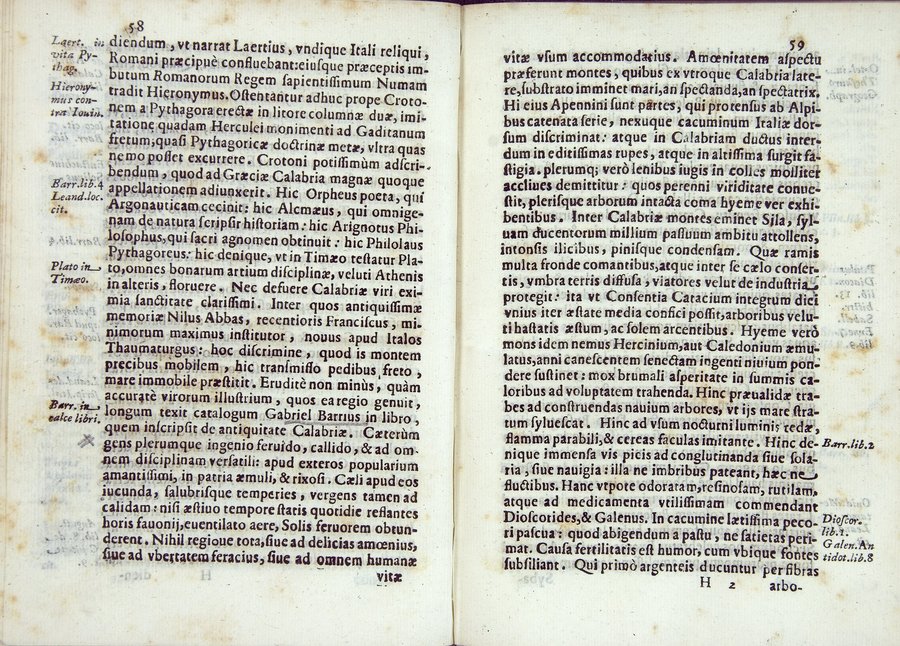 58
Laert. in
vita Py-
thag.
Hierony-
mus con-
tra Iouin.
Barr. lib. 4
Leand. loc.
cit.
Plato in
Timæo.
Barr. in
calce libri.
diendum, vt narrat Laertius, vndique Itali reliqui,
Romani præcipuè confluebant: eiusque præceptis im-
butum Romanorum Regem sapientissimum Numam
tradit Hieronymus. Ostentantur adhuc prope Croto-
nem a Pythagora erectæ in litore columnæ duæ, imi-
tatione quadam Herculei monimenti ad Gaditanum
fretum, quasi Pythagoricæ doctrinæ metæ, vltra quas
nemo posset excurrere. Crotoni potissimùm adscri-
bendum, quod ad Græciæ Calabria magnæ quoque
appellationem adiunxerit. Hic Orpheus poeta, qui
Argonauticam cecinit: hic Alcmæus, qui omnige-
nam de natura scripsit historiam: hic Arignotus Phi-
losophus, qui sacri agnomen obtinuit: hic Philolaus
Pythagoreus: hic denique, vt in Timæo testatur Pla-
to, omnes bonarum artium disciplinæ, veluti Athenis
in alteris, floruere. Nec defuere Calabriæ viri exi-
mia sanctitate clarissimi. Inter quos antiquissimæ
memoriæ Nilus Abbas, recentioris Franciscus, mi-
nimorum maximus institutor, nouus apud Italos
Thaumaturgus: hoc discrimine, quod is montem
precibus mobilem, hic transmisso pedibus freto,
mare immobile præstitit. Eruditè non minùs, quàm
accuratè virorum illustrium, quos ea regio genuit,
longum texit catalogum Gabriel Barrius in libro,
quem inscripsit de antiquitate Calabriæ. Cæterùm
gens plerumque ingenio feruido, callido, & ad om-
nem disciplinam versatili: apud exteros popularium
amantissimi, in patria æmuli, & rixosi. Cæli apud eos
iucunda, salubrisque temperies, vergens tamen ad
calidam: nisi æstiuo tempore statis quotidie reflantes
horis fauonij, euentilato aere, Solis feruorem obtun-
derent. Nihil regione tota, siue ad delicias amœnius,
siue ad vbertatem feracius, siue ad omnem humanæ
vitæ
59
vitæ vsum accommodatius. Amœnitatem aspectu
præferunt montes, quibus ex vtroque Calabria late-
re, substrato imminet mari, an spectanda, an spectatrix.
Hi eius Apennini sunt partes, qui protensus ab Alpi-
bus catenata serie, nexuque cacuminum Italiæ dor-
sum discriminat: atque in Calabriam ductus inter-
dum in editissimas rupes, atque in altissima surgit fa-
stigia. plerumq; verò lenibus iugis in colles molliter
accliues demittitur: quos perenni viriditate conue-
stit, plerisque arborum intacta coma hyeme ver exhi-
bentibus. Inter Calabriæ montes eminet Sila, syl-
uam ducentorum millium passuum ambitu attollens,
intonsis ilicibus, pinisque condensam. Quæ ramis
multa fronde comantibus, atque inter se cælo conser-
tis, vmbra terris diffusa, viatores velut de industria
protegit: ita vt Consentia Catacium integrum diei
vnius iter æstate media confici possit, arboribus velu-
ti hastatis æstum, ac solem arcentibus. Hyeme verò
mons idem nemus Hercinium, aut Caledonium æmu-
latus, anni canescentem senectam ingenti niuium pon-
dere sustinet: mox brumali asperitate in summis ca-
loribus ad voluptatem trahenda. Hinc præualidæ tra-
bes ad construendas nauium arbores, vt ijs mare stra-
tum syluescat. Hinc ad vsum nocturni luminis tedæ,
flamma parabili, & cereas faculas imitante. Hinc de-
nique immensa vis picis ad conglutinanda siue sola-
ria, siue nauigia: illa ne imbribus pateant, hæc ne
fluctibus. Hanc vtpote odoratam, resinosam, rutilam,
atque ad medicamenta vtilissimam commendant
Dioscorides, & Galenus. In cacumine lætissima peco-
ri pascua: quod abigendum a pastu, ne satietas peri-
mat. Causa fertilitatis est humor, cum vbique fontes
subsiliant. Qui primò argenteis ducuntur per fibras
H 2 arbo-
Barr. lib. 2
Dioscor.
lib. 1.
Galen. An
tidot. lib. 8